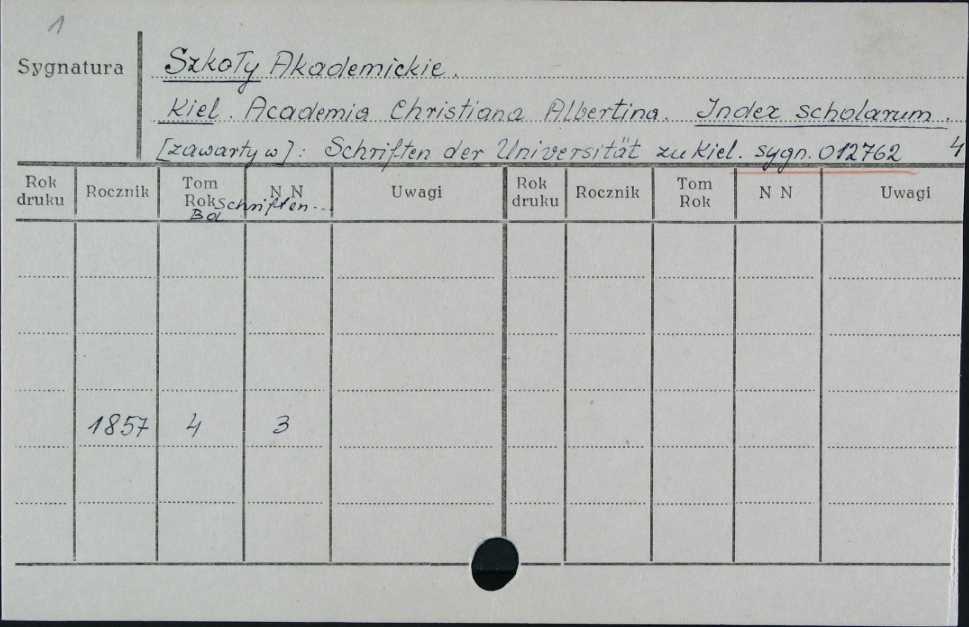 1
Sygnatura
Szkoły Akademickie.
Kiel. Academia Christiana Albertina. Index scholarum.
[zawarty w]: Schriften der Universität zu Kiel. sygn. 012762 4
Rok druku Rocznik Tom Rok N N Uwagi Rok druku Rocznik Tom Rok N N Uwagi
Schriften...
Bd
1857 4 3